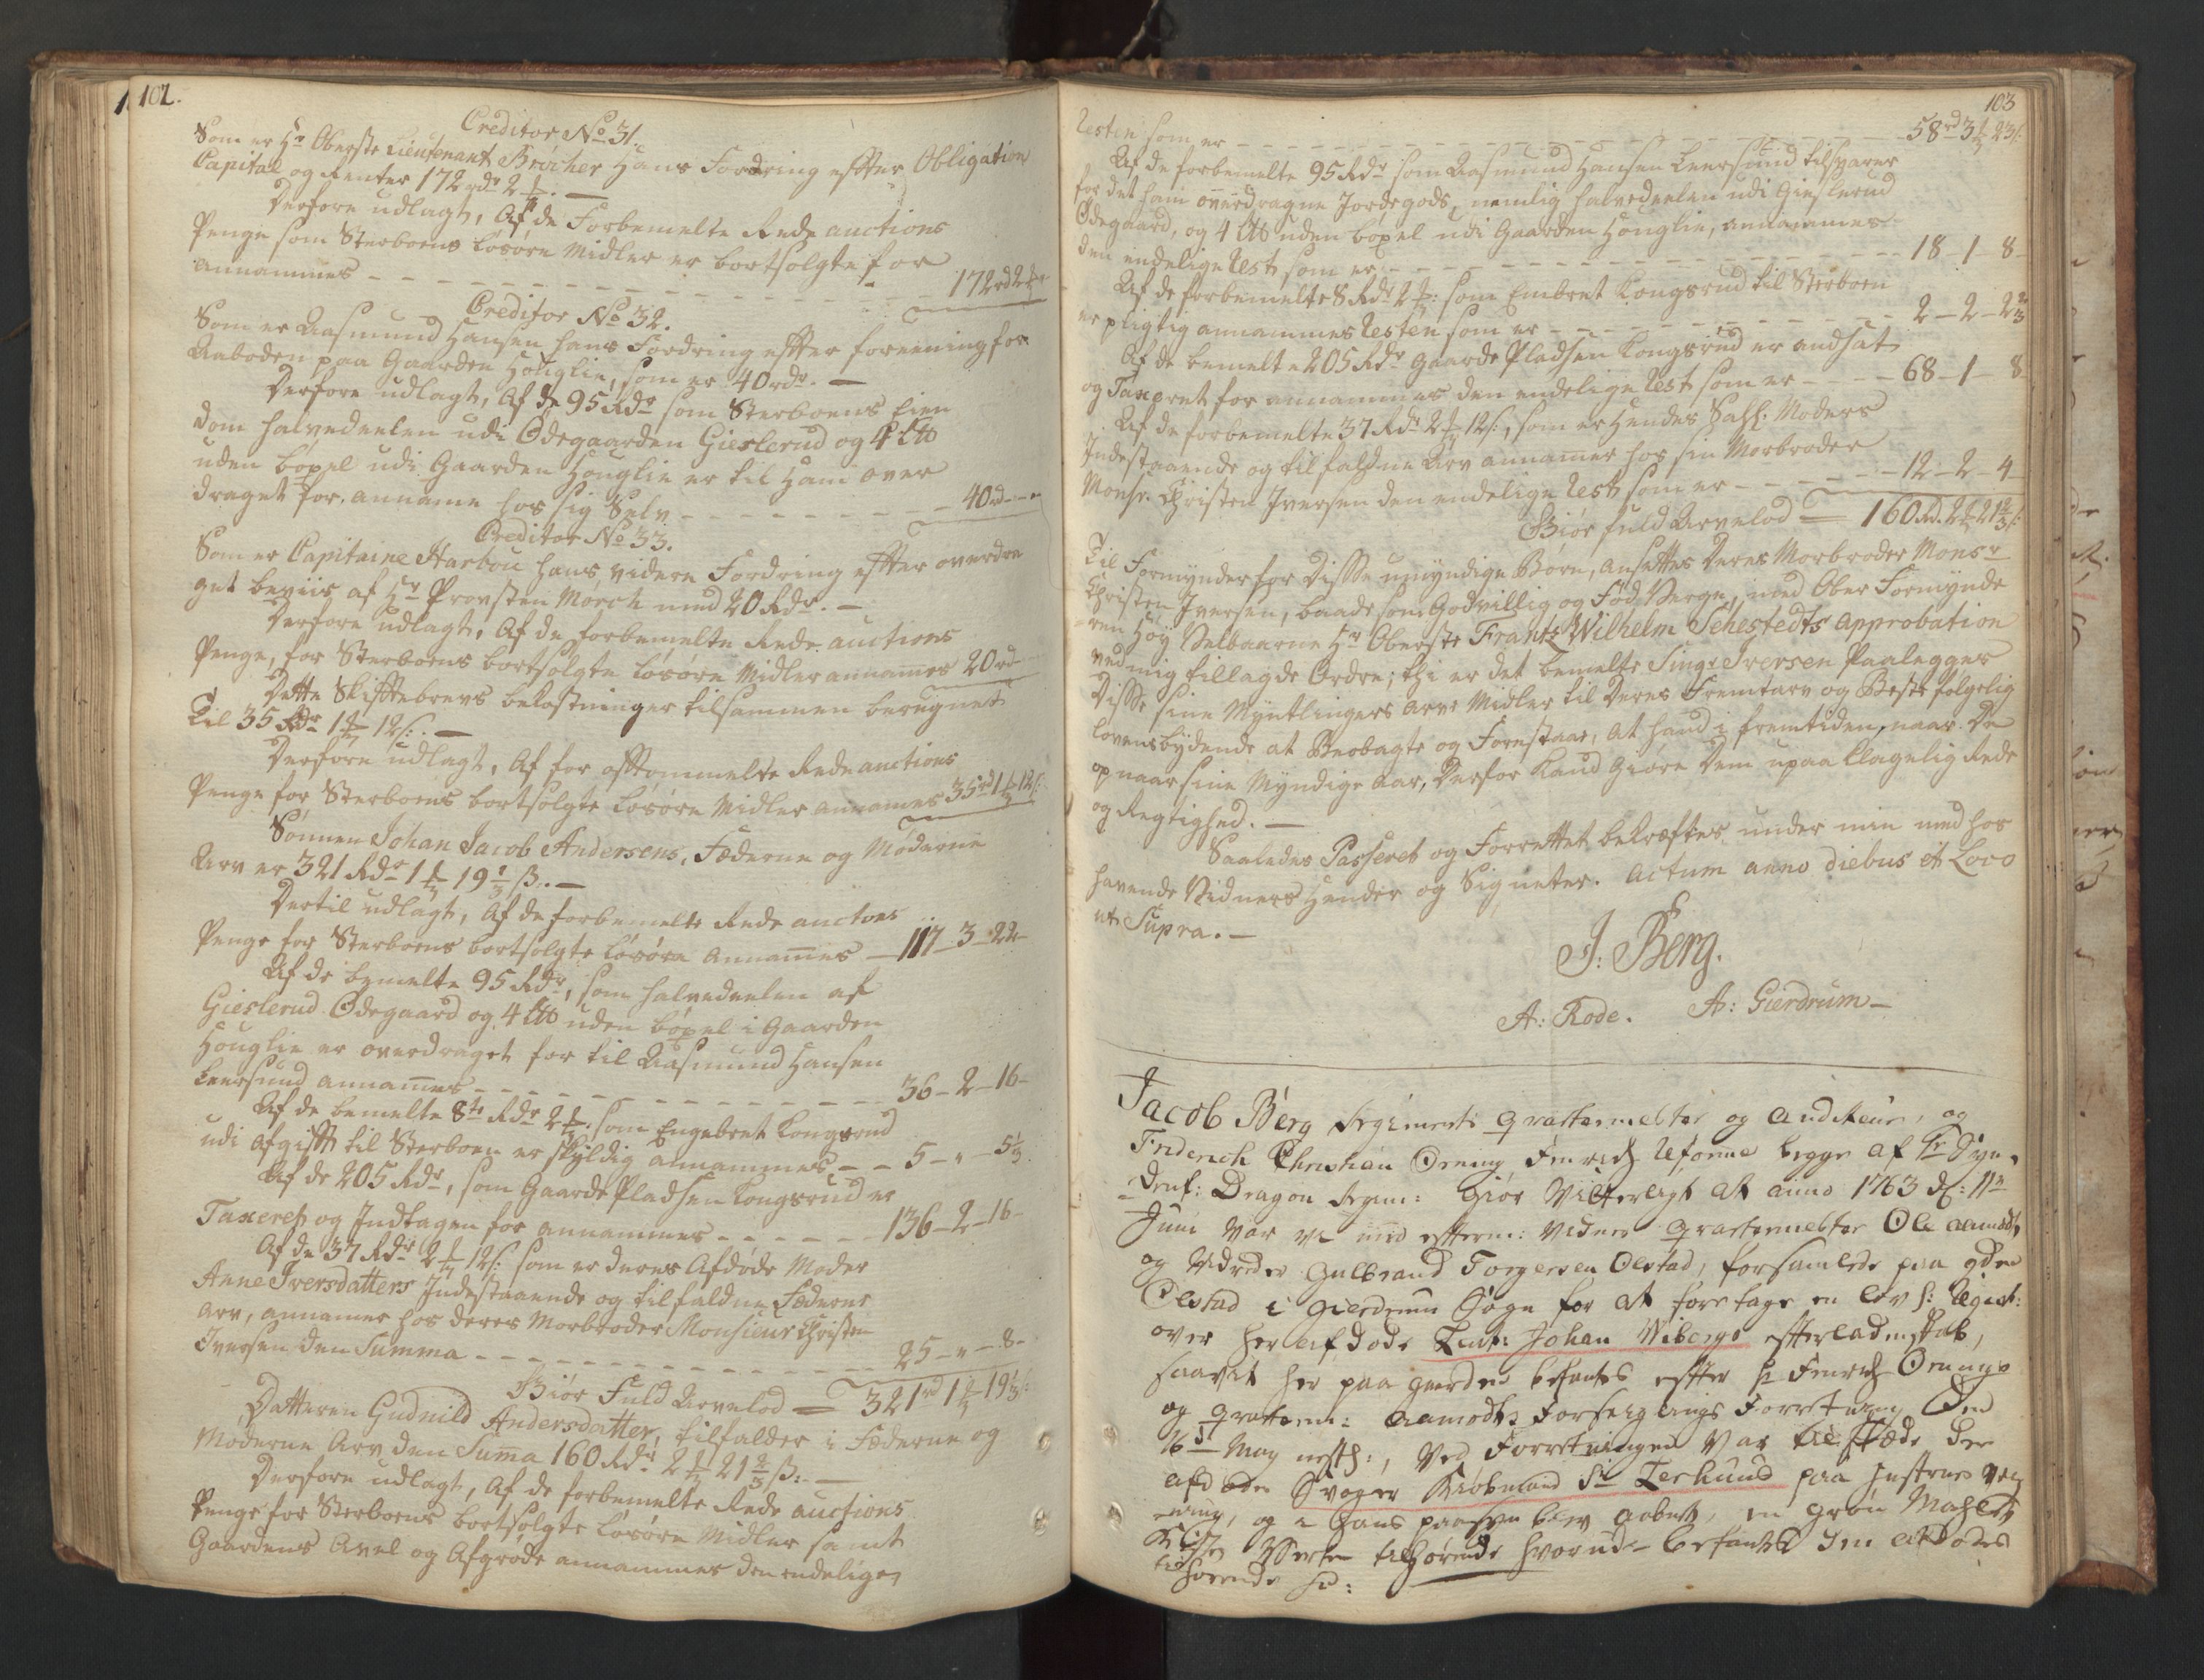 102.
Creditor No 31.
Som er Hr Oberste Lieutenant Bröcher Hans Fordring effter Obligation
Capital og Renter 172 rdr 2 ƶ. —
Derfore udlagt, Af de Forbemelte Rede auctions
Penge som Sterboens Lösöre Midler er bortsolgte for
annammes — 172 rd 2 ƶ
Creditor No 32.
Som er Aasmund Hansen hans Fordring effter foreening for
Aaboden paa Gaarden Houglie, som er 40 rdr. —
Derfore udlagt, Af de 95 Rdr som Sterboens Eien
dom halvedeelen udi Ödegaarden Gieslerud og 4 Lb
uden böxel udi Gaarden Houglie er til Ham over
draget for. anname hos sig Selv — 40 rd
Creditor No 33.
Som er Capitaine Harbou hans videre Fordring effter overdra
get beviis af Hr Provsten Morch med 20 Rdr. —
Derfore udlagt, Af de forbemelte Rede auctions
Penge, for Sterboens bortsolgte Lösöre Midler annammes 20 rd
Dette Skifftebrevs bekostninger tilsammen beregnet
Til 35 Rdr 1 ƶ 12 s. —
Derfore udlagt, Af for offtommelte Rede auctions
Penge for Sterboens bortsolgte Lösöre Midler annammes 35 rd 1 ƶ 12 s:
Sönnen Johan Jacob Andersens, Fæderne og Möderne
Arv er 321 Rdr 1 ƶ 19 1/3 ß. —
Dertil udlagt, Af de forbemelte Rede auctons
Penge for Sterboens bortsolgte Lösöre Annammes — 117 — 3 — 22
Af de bemelte 95 Rdr, som halvedeelen af
Gieslerud Ödegaard og 4 Lb uden böxel i Gaarden
Houglie er overdraget for til Aasmund Hansen
Leersund annammes — 36 — 2 — 16 —
Af de bemelte 8te Rdr 2 ƶ. som Engebret Kongsrud
udi Afgifft til Sterboen er skyldig annammes — 5 — " — 5 1/3
Af de 205 Rdr, som Gaarde Pladsen Kongsrud er
Taxeret og Indtagen for annammes — 136 — 2 — 16 —
Af de 37 Rdr 2 ƶ 12 s: som er deres Afdöde Moder
Anne Iversdatters Indestaaende og tilfaldne Fæderne
Arv, annamer hos deres Morbroder Monsieur Christen
Iversen den Summa — 25 — " — 8 —
Giör Fuld Arvelod = 321 rd 1 ƶ 19 1/3 s:
Datteren Gudnild Andersdatter, tilfalder i Fæderne og
Möderne Arv den Suma 160 Rdr 2 ƶ 21 2/3 ß. —
Derfore udlagt, Af de forbemelte Rede auctions
Penge for Sterboens bortsolgte Lösöre Midler samt
Gaardens Avel og Afgröde annammes den endelige
103
Resten som er — 58 rd 3 ƶ 23 s:
Af de forbemelte 95 Rdr som Aasmund Hansen Leersund tilsvarer
for det ham overdragne Jordegods, nemlig halvedeelen udi Gieslerud
Ödegaard, og 4 Lb uden böxel udi Gaarden Houglie, annammes
den endelige Rest som er — 18 — 1 — 8 —
Af de forbemelte 8 Rdr 2 ƶ: som Embret Kongsrud til Sterboen
er pligtig annammes Resten som er — 2 — 2 — 2 2/3
Af de bemelte 205 Rdr Gaarde Pladsen Kongsrud er andsat
og Taxeret for annammes den endelige Rest som er — 68 — 1 — 8
Af de forbemelte 37 Rdr 2 ƶ 12 s:, som er Hendes Sahl: Moders
Indestaaende og tilfaldne Arv annamer hos sin Morbroder
Monsr. Christen Iversen den endelige Rest som er — 12 — 2 — 4
Giör fuld Arvelod = 160 Rd. 2 ƶ 21 2/3 s:
Til Formynder for Disse umyndige Börn, ansettes Deres Morbroder Monsr
Christen Iversen, baade som Godvillig og Fød Verge, med Ober Formynde
ren Höy Velbaarne Hr Oberste Frantz Wilhelm Sehestedts approbation
ved mig tillagde Ordre; thi er det bemelte Singr Iversen Paalegger
Disse sine Myntlingers Arve Midler til Deres Fremtarv og Beste fölgelig
Lovens bydende at Beobagte og Forestaae, At hand i fremtiden, naar De
opnaar sine Myndige Aar, Derfor Kand Giöre Dem upaaklagelig Rede
og Regtighed. —
Saaledes Passeret og Forrettet bekræftes under min med hos
havende Vidners Hender og Signeter. Actum anno diebus et Loco
ut Supra. —
J: Berg.
A: Rode. A: Gierdrum —
Jacob Berg Regiments Qvarteermester og Auditeur, og
Friderich Christian Orning Fenrich Reforme begge af 1te Syn,
denf: Dragon Regim: Giör Vitterligt At Anno 1763 d: 11te
Juni var vi med efterm: Vidner Qvartermester Ole Aamodt
og Vidner Gulbrand Torgersen Olstad, forsamlede paa gden
Olstad i Gierdrum Sogn for at foretage en Lov s: Regist:
over her afdöde Lieut: Johan Wibergs effterladenskab,
saavit her paa gaarden befantes effter hr Fenrich Ornings
og Qvarterm: Aamodts Forseiglings Forretning Den
16de May nesth:, Ved Forretningen Var tilstæde den
afdödes Svoger Kiöbmand Sr Terkuus paa Hustrues Veg
ning, og i hans paasyn blev aabnet, en grön Mahlet
Kiste tilhörende hvorudi befantes den afdödes